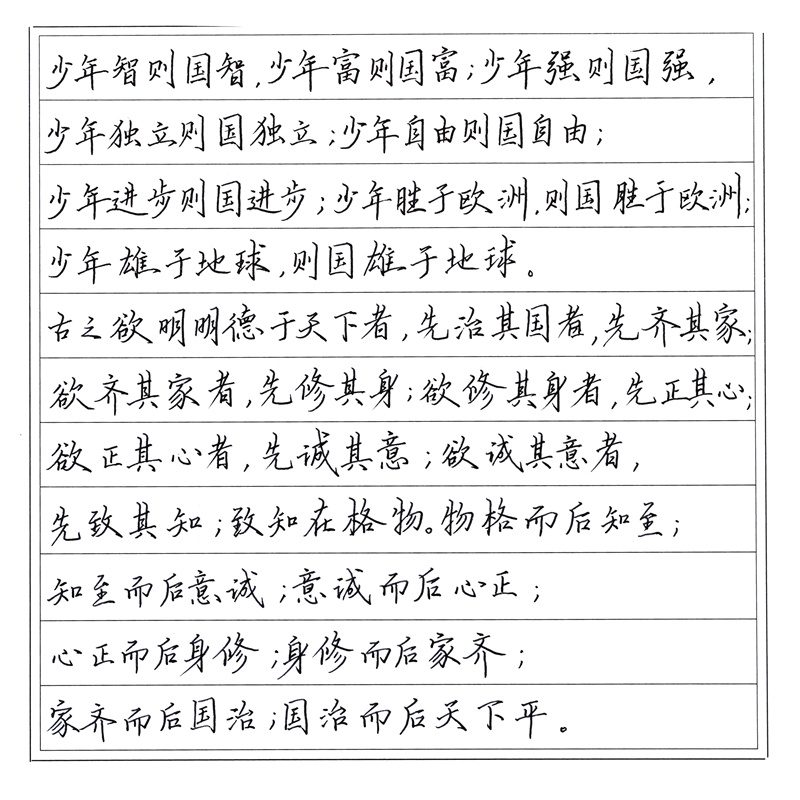 少年智则国智,少年富则国富;少年强则国强,
少年独立则国独立;少年自由则国自由;
少年进步则国进步;少年胜于欧洲,则国胜于欧洲;
少年雄于地球,则国雄于地球。
古之欲明明德于天下者,先治其国者,先齐其家;
欲齐其家者,先修其身;欲修其身者,先正其心;
欲正其心者,先诚其意;欲诚其意者,
先致其知;致知在格物。物格而后知至;
知至而后意诚;意诚而后心正;
心正而后身修;身修而后家齐;
家齐而后国治;国治而后天下平。